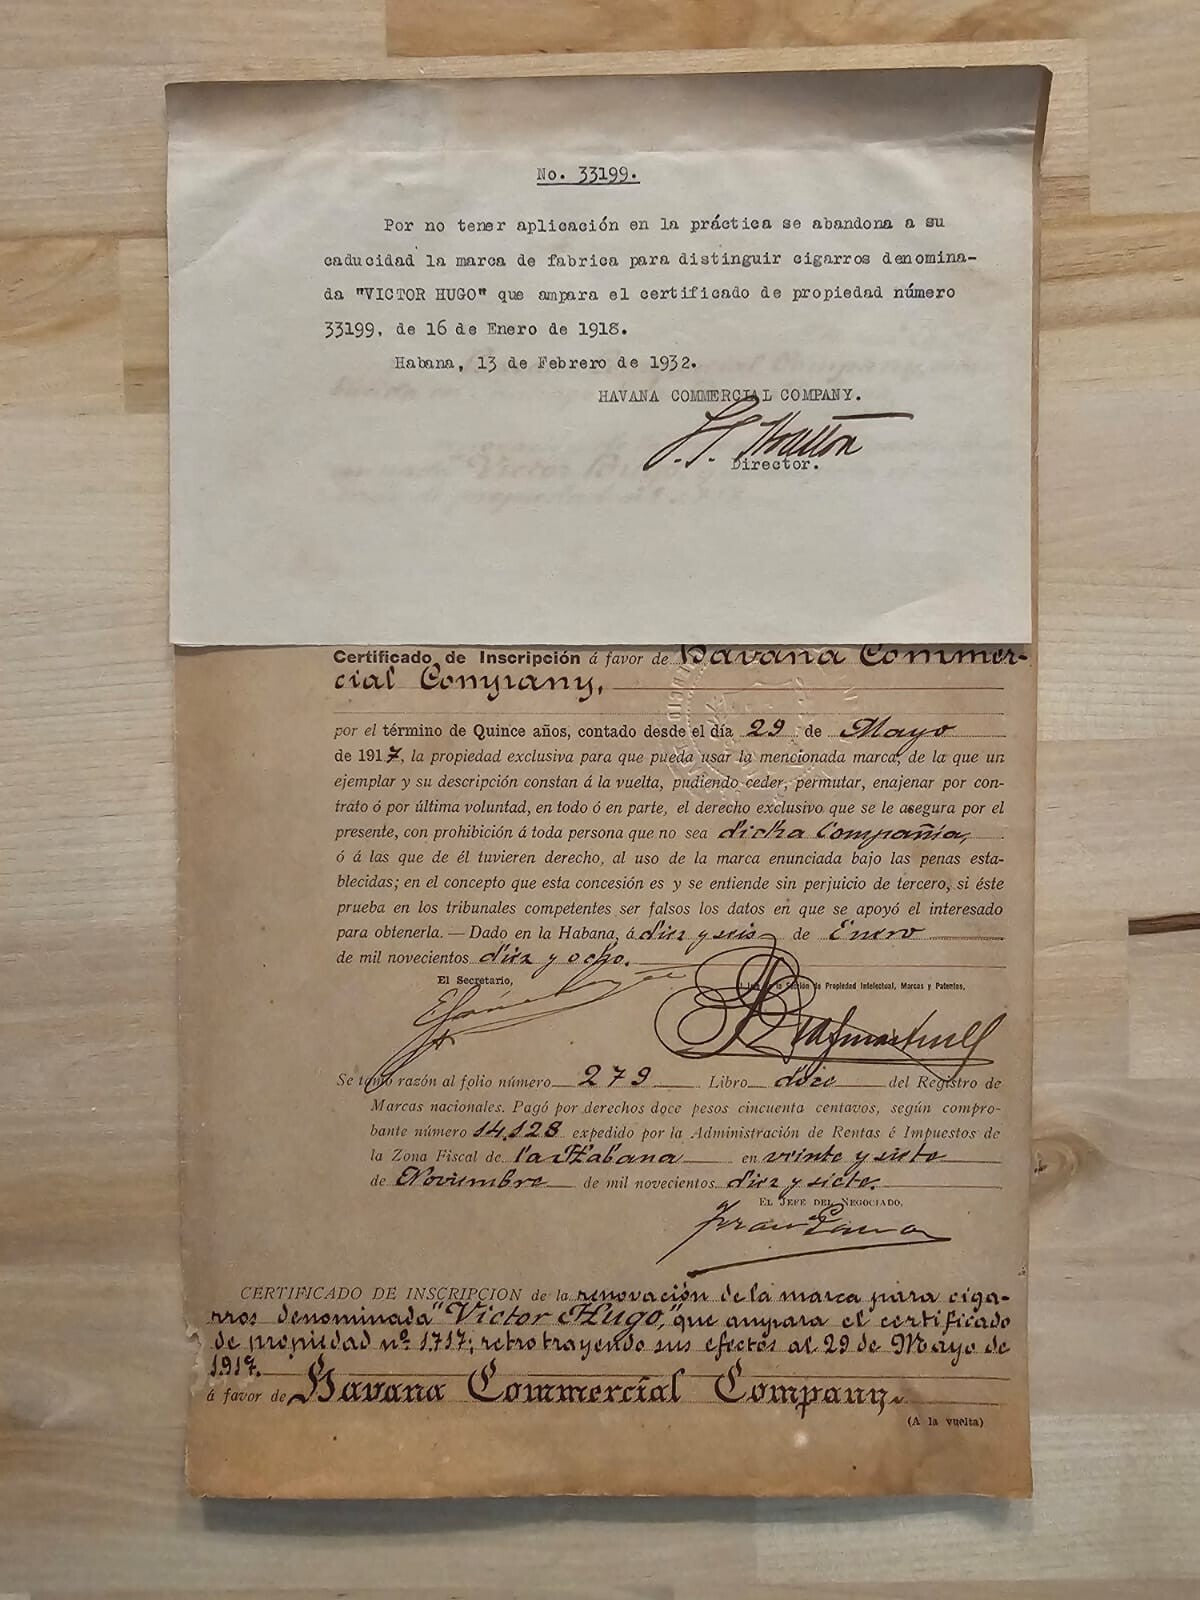 No. 33199.
Por no tener aplicación en la práctica se abandona a su
caducidad la marca de fabrica para distinguir cigarros denomina-
da "VICTOR HUGO" que ampara el certificado de propiedad número
33199, de 16 de Enero de 1918.
Habana, 13 de Febrero de 1932.
HAVANA COMMERCIAL COMPANY.
Director.
Certificado de Inscripción á favor de Havana Commer-
cial Company,
por el término de Quince años, contado desde el día 29 de Mayo
de 1917, la propiedad exclusiva para que pueda usar la mencionada marca, de la que un
ejemplar y su descripción constan á la vuelta, pudiendo ceder, permutar, enajenar por con-
trato ó por última voluntad, en todo ó en parte, el derecho exclusivo que se le asegura por el
presente, con prohibición á toda persona que no sea dicha Compañia,
ó á las que de él tuvieren derecho, al uso de la marca enunciada bajo las penas esta-
blecidas; en el concepto que esta concesión es y se entiende sin perjuicio de tercero, si éste
prueba en los tribunales competentes ser falsos los datos en que se apoyó el interesado
para obtenerla. — Dado en la Habana, á diez y seis de Enero
de mil novecientos diez y ocho.
El Secretario,
de Propiedad Intelectual, Marcas y Patentes,
Se tomó razón al folio número 279 Libro doce del Registro de
Marcas nacionales. Pagó por derechos doce pesos cincuenta centavos, según compro-
bante número 14,128 expedido por la Administración de Rentas é Impuestos de
la Zona Fiscal de la Habana en veinte y siete
de Noviembre de mil novecientos diez y siete.
EL JEFE DEL NEGOCIADO,
CERTIFICADO DE INSCRIPCION de la renovación de la marca para ciga-
rros denominada "Victor Hugo," que ampara el certificado
de propiedad nº 1717; retrotrayendo sus efectos al 29 de Mayo de
1917.
á favor de Havana Commercial Company.
(A la vuelta)